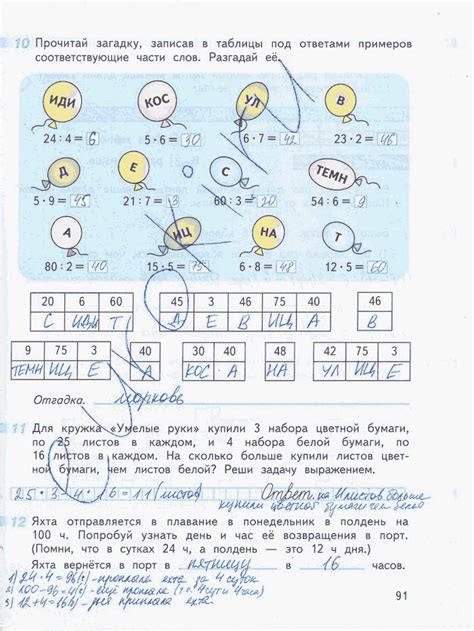 10 Прочитай загадку, записав в таблицы под ответами примеров
соответствующие части слов. Разгадай её.
ИДИ КОС УЛ В
24 : 4 = 6 5 · 6 = 30 6 · 7 = 42 23 · 2 = 46
Д Е С ТЕМН
5 · 9 = 45 21 : 7 = 3 60 : 3 = 20 54 : 6 = 9
А ИЦ НА Т
80 : 2 = 40 15 · 5 = 75 6 · 8 = 48 12 · 5 = 60
20 6 60 45 3 46 75 40 46
С ИДИ Т Д Е В ИЦ А В
9 75 3 40 30 40 48 42 75 3
ТЕМН ИЦ Е А КОС А НА УЛ ИЦ Е
Отгадка. морковь
11 Для кружка «Умелые руки» купили 3 набора цветной бумаги,
по 25 листов в каждом, и 4 набора белой бумаги, по
16 листов в каждом. На сколько больше купили листов цвет-
ной бумаги, чем листов белой? Реши задачу выражением.
25 · 3 - 4 · 16 = 11 (листов) Ответ: на 11 листов больше
купили цветной бумаги чем белой
12 Яхта отправляется в плавание в понедельник в полдень на
100 ч. Попробуй узнать день и час её возвращения в порт.
(Помни, что в сутках 24 ч, а полдень — это 12 ч дня.)
Яхта вернётся в порт в пятницу в 16 часов.
1) 24 · 4 = 96(ч) - проплыла яхта за 4 суток
2) 100-96=4(ч) - ещё проплыла (т.е. 4 сут и 4 часа)
3) 12+4=16(ч) - приплыла яхта.
91